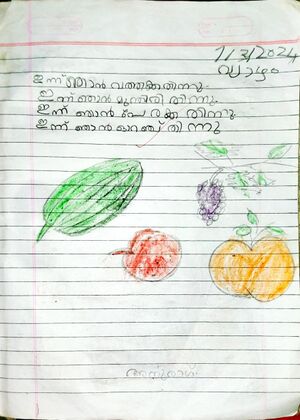 7/3/2024
വ്യാഴം
ഇന്ന് ഞാൻ വത്തക്ക തിന്നു.
ഇന്ന് ഞാൻ മുന്തിരി തിന്നു.
ഇന്ന് ഞാൻ പേരക്ക തിന്നു.
ഇന്ന് ഞാൻ ഓറഞ്ച് തിന്നു